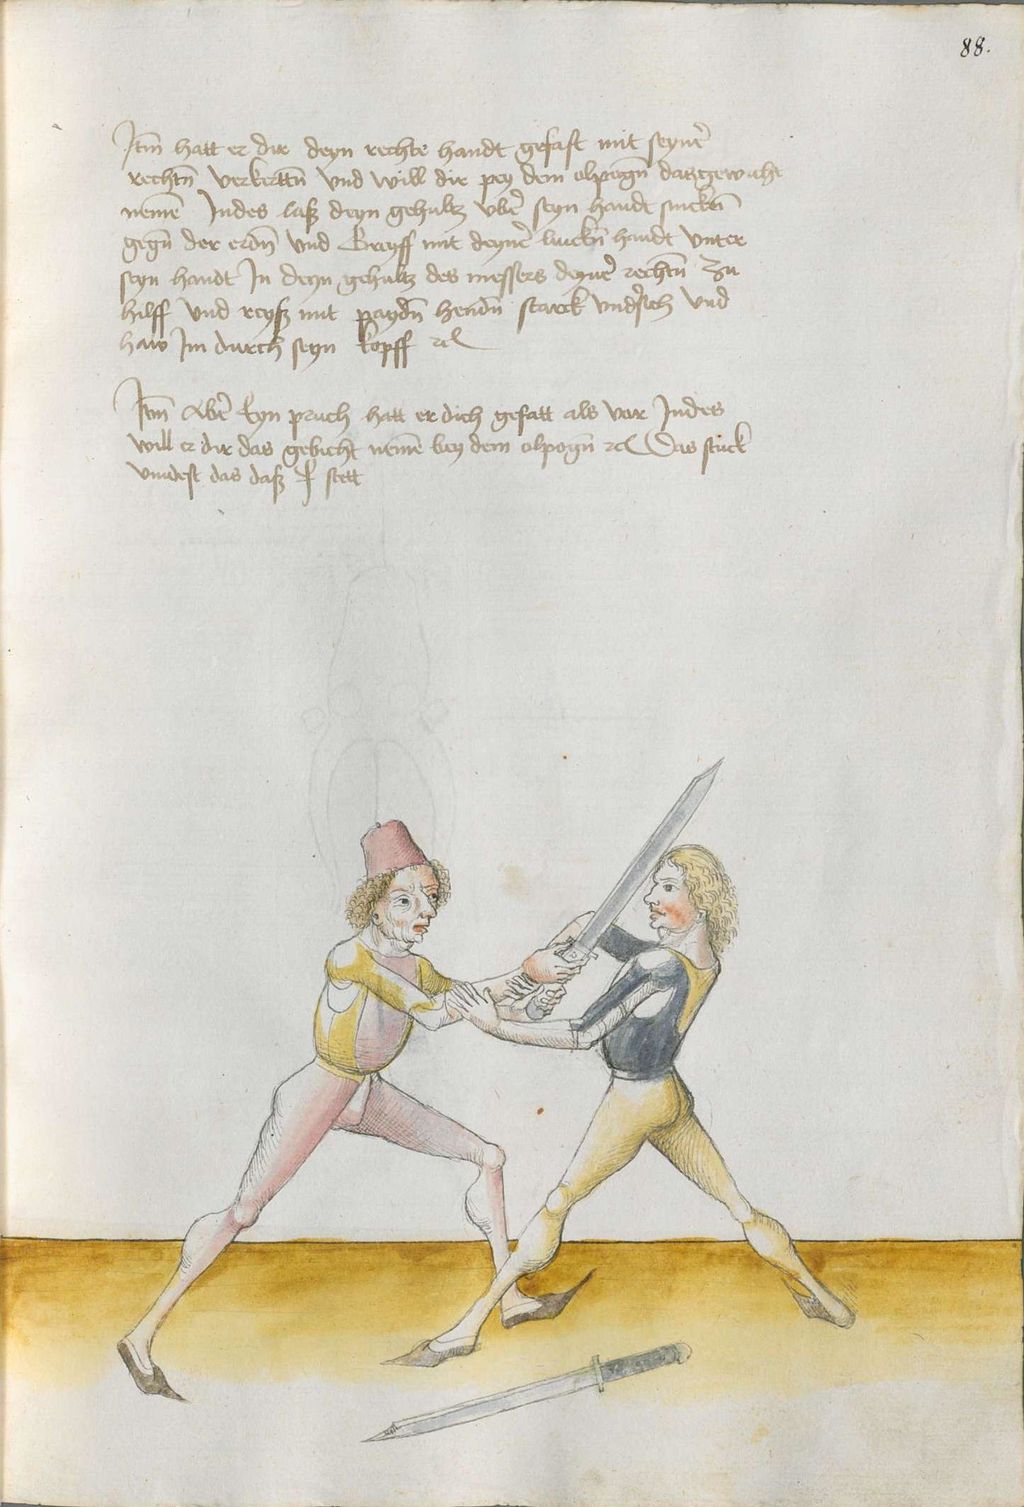 88.
Itm̄ hatt er dir deyn rechte handt gefast mit seyner̄
rechtn̄ verkerttn̄ vnd will dir pey dem olpogn̄ das gewicht
nemē Indes laß deyn gehultz vber̄ seyn handt sincken̄
gegn̄ der erdn̄ vnd Greyff mit deyner̄ linckn̄ handt vnter
seyn handt In deyn gehultz des messers deyner̄ rechtn̄ zu
hilff vnd reyß mit paydn̄ hendn̄ starck vndersich vnd
haw Im durch seyn kopff ⁊c
Itm̄ Aber̄ Eyn pruch hatt er dich gefatt als vor Indes
will er dir das gebicht nemē bey dem olpogn̄ ⁊c Das stuck
vindest das daß ꝭ stett